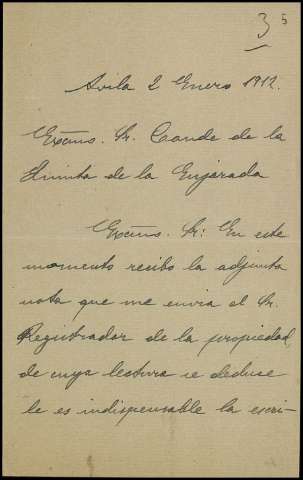 3 5
Avila 2 Enero 1912.
Excmo. Sr. Conde de la
Quinta de la Enjarada
Excmo. Sr: En este
momento recibo la adjunta
nota que me envia el Sr.
Registrador de la propiedad,
de cuya lectura se deduce
le es indispensable la escri-